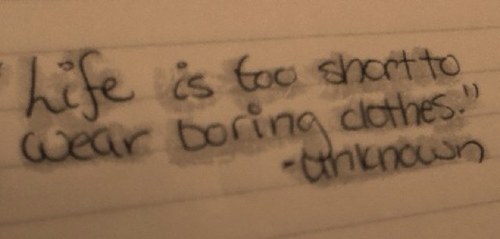 "Life is too short to
wear boring clothes."
-unknown